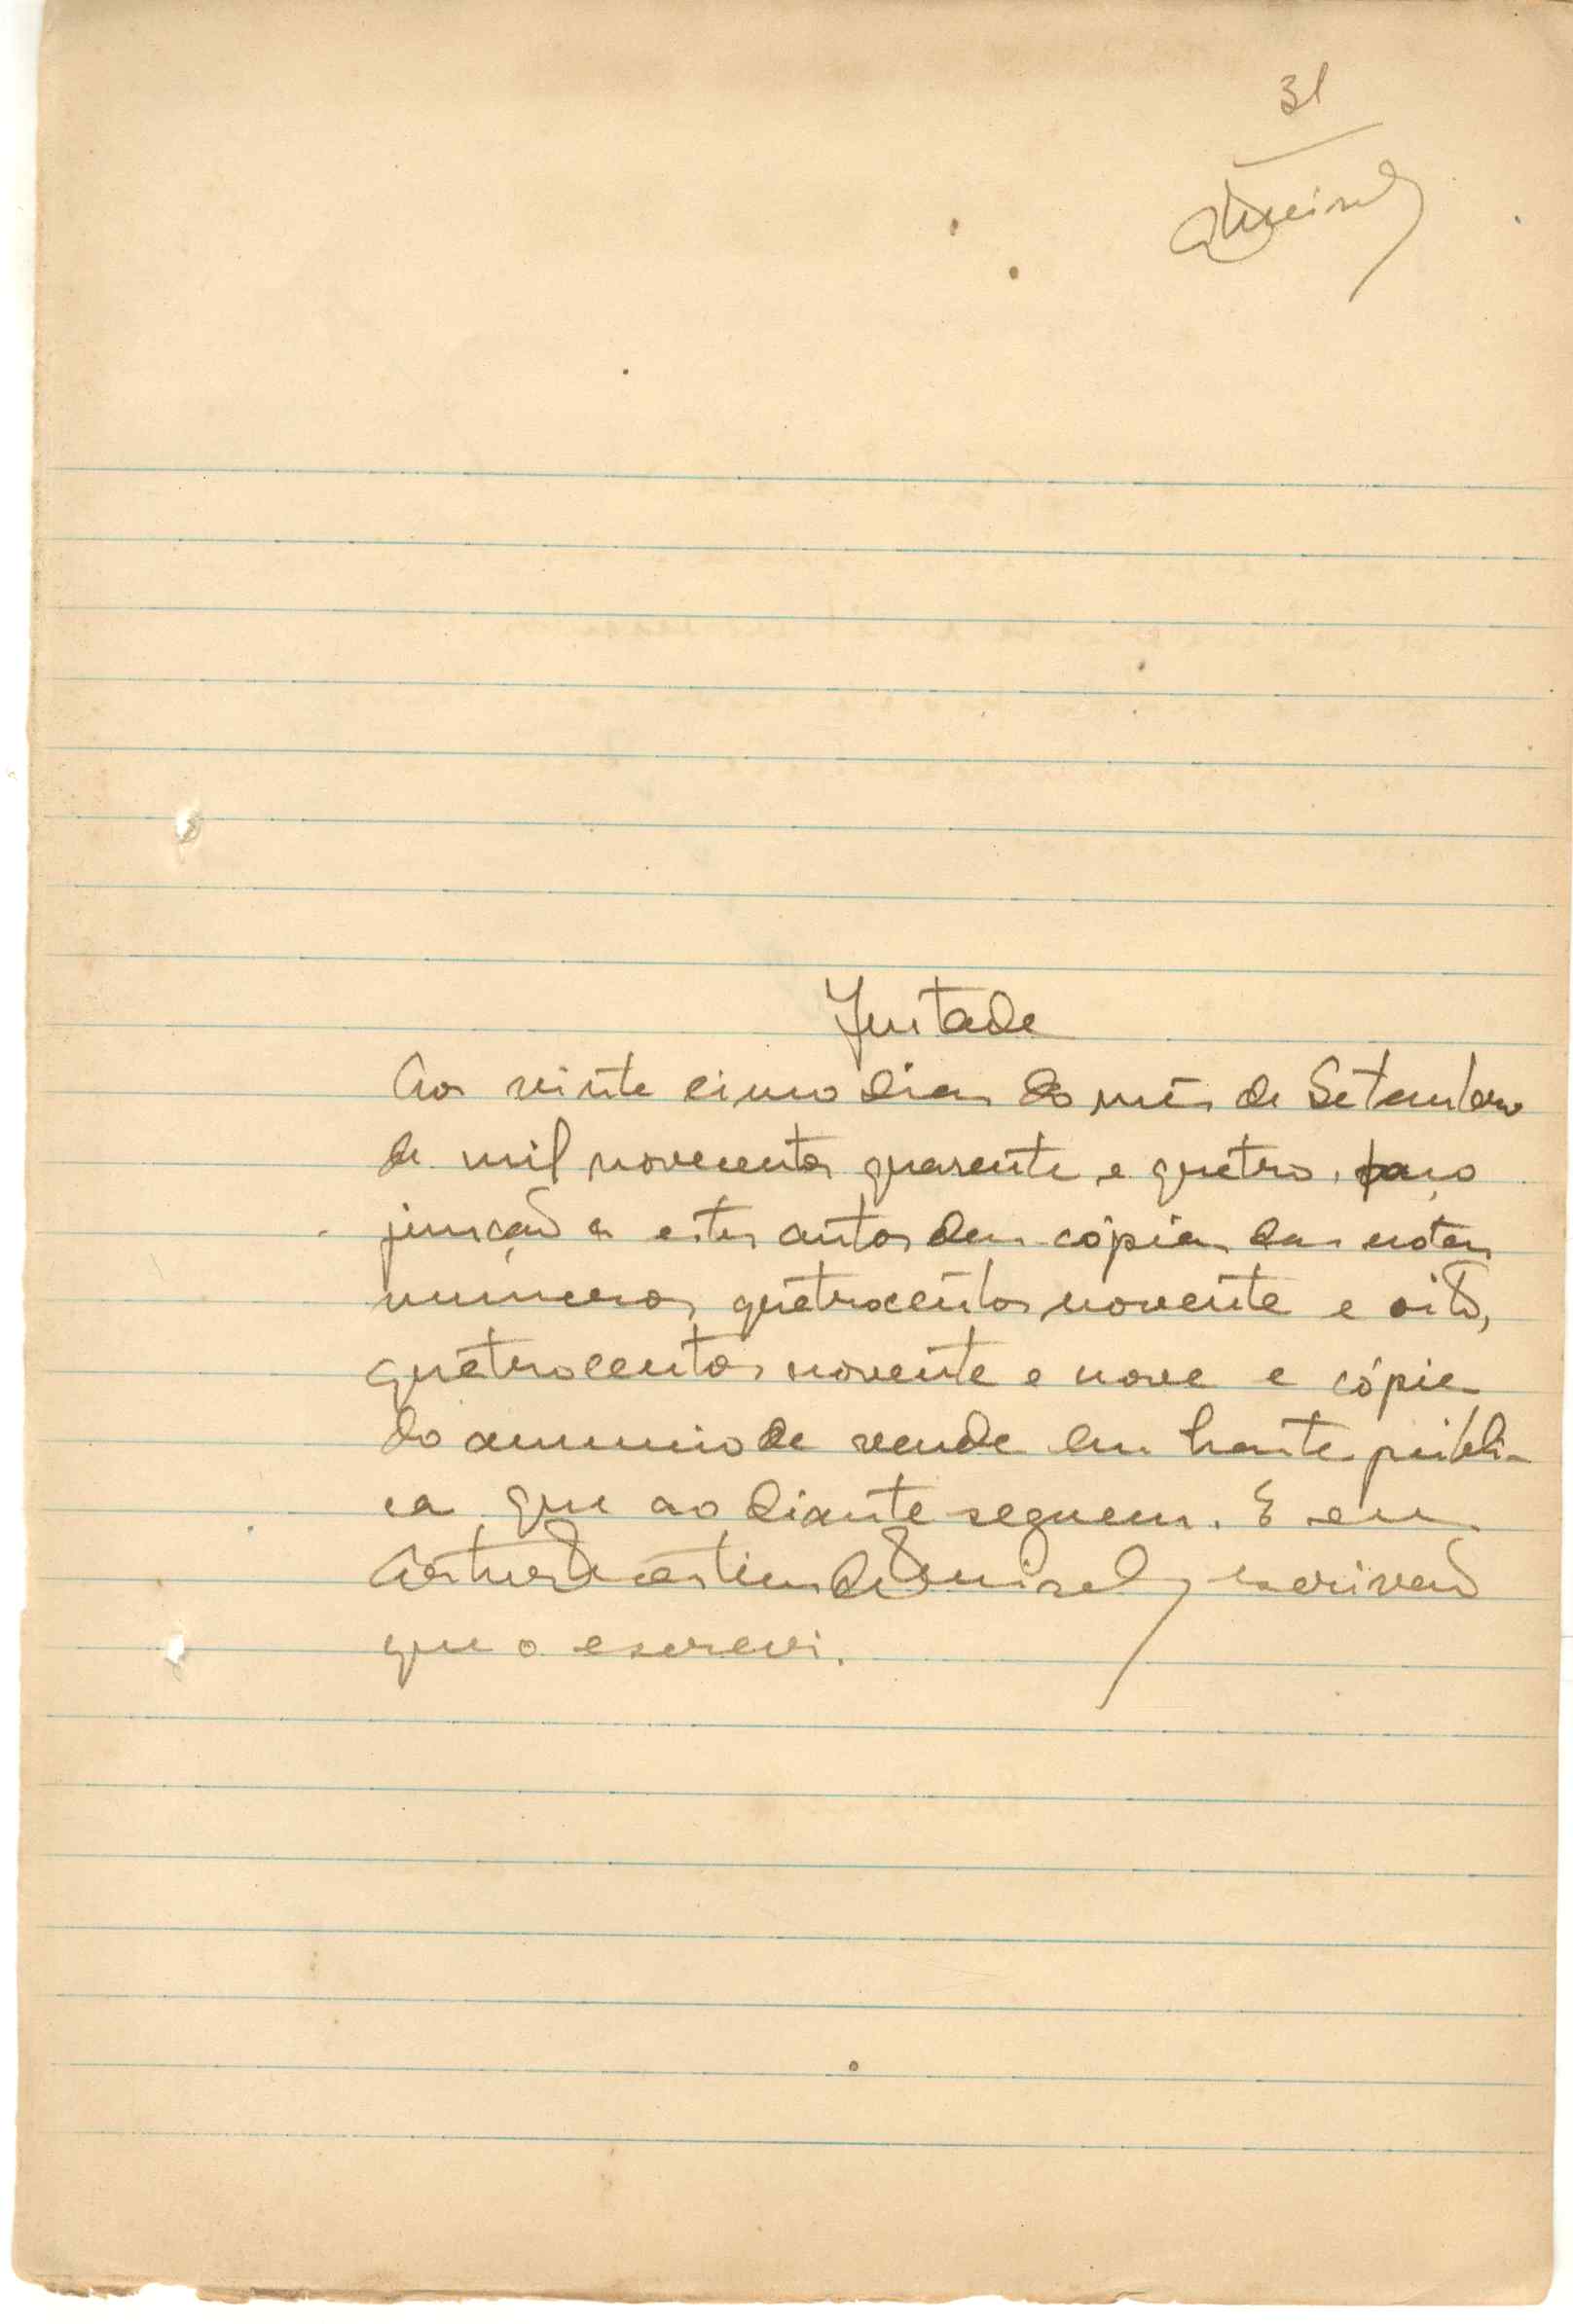 31
Juntada
Aos vinte cinco dias do mês de Setembro
de mil novecentos quarenta e quatro, faço
junção a estes autos das cópias das notas
numeros quatrocentos noventa e oito,
quatrocentos noventa e nove e cópia
do anuncio de venda em hasta públi-
ca que ao diante seguem. E eu
Artur escrivão
que o escrevi.